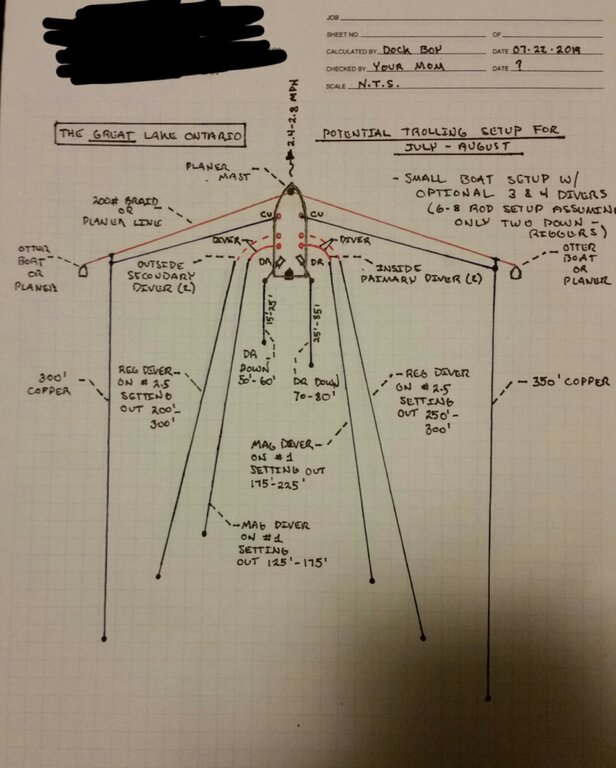 JOB
SHEET NO. OF
CALCULATED BY DOCK BOY DATE 07.22.2019
CHECKED BY YOUR MOM DATE ?
SCALE N.T.S.
THE GREAT LAKE ONTARIO
2.4-2.8 MPH
POTENTIAL TROLLING SETUP FOR
JULY - AUGUST
PLANER
MAST
- SMALL BOAT SETUP W/
OPTIONAL 3 & 4 DIVERS
(6-8 ROD SETUP ASSUMING
ONLY TWO DOWN-
RIGGERS)
200# BRAID
OR
PLANER LINE
CU
CU
DIVER
DIVER
OTTER
BOAT
OR
PLANER
OUTSIDE
SECONDARY
DIVER (2)
DR
DR
INSIDE
PRIMARY DIVER (2)
OTTER
BOAT OR
PLANER
15'-25'
25'-85'
DR
DOWN
50'-60'
DR DOWN
70-80'
300'
COPPER
REG DIVER
ON # 2.5
SETTING
OUT 200'-
300'
REG DIVER
ON #2.5
SETTING
OUT 250'-
300'
350' COPPER
MAG DIVER
ON #1
SETTING OUT
175'-225'
MAG DIVER
ON #1
SETTING
OUT 125'-175'